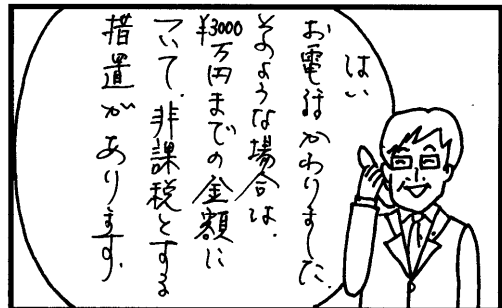 はい
お電話かわりました。
そのような場合は、
¥3000万円までの金額に
ついて、非課税とする
措置があります。